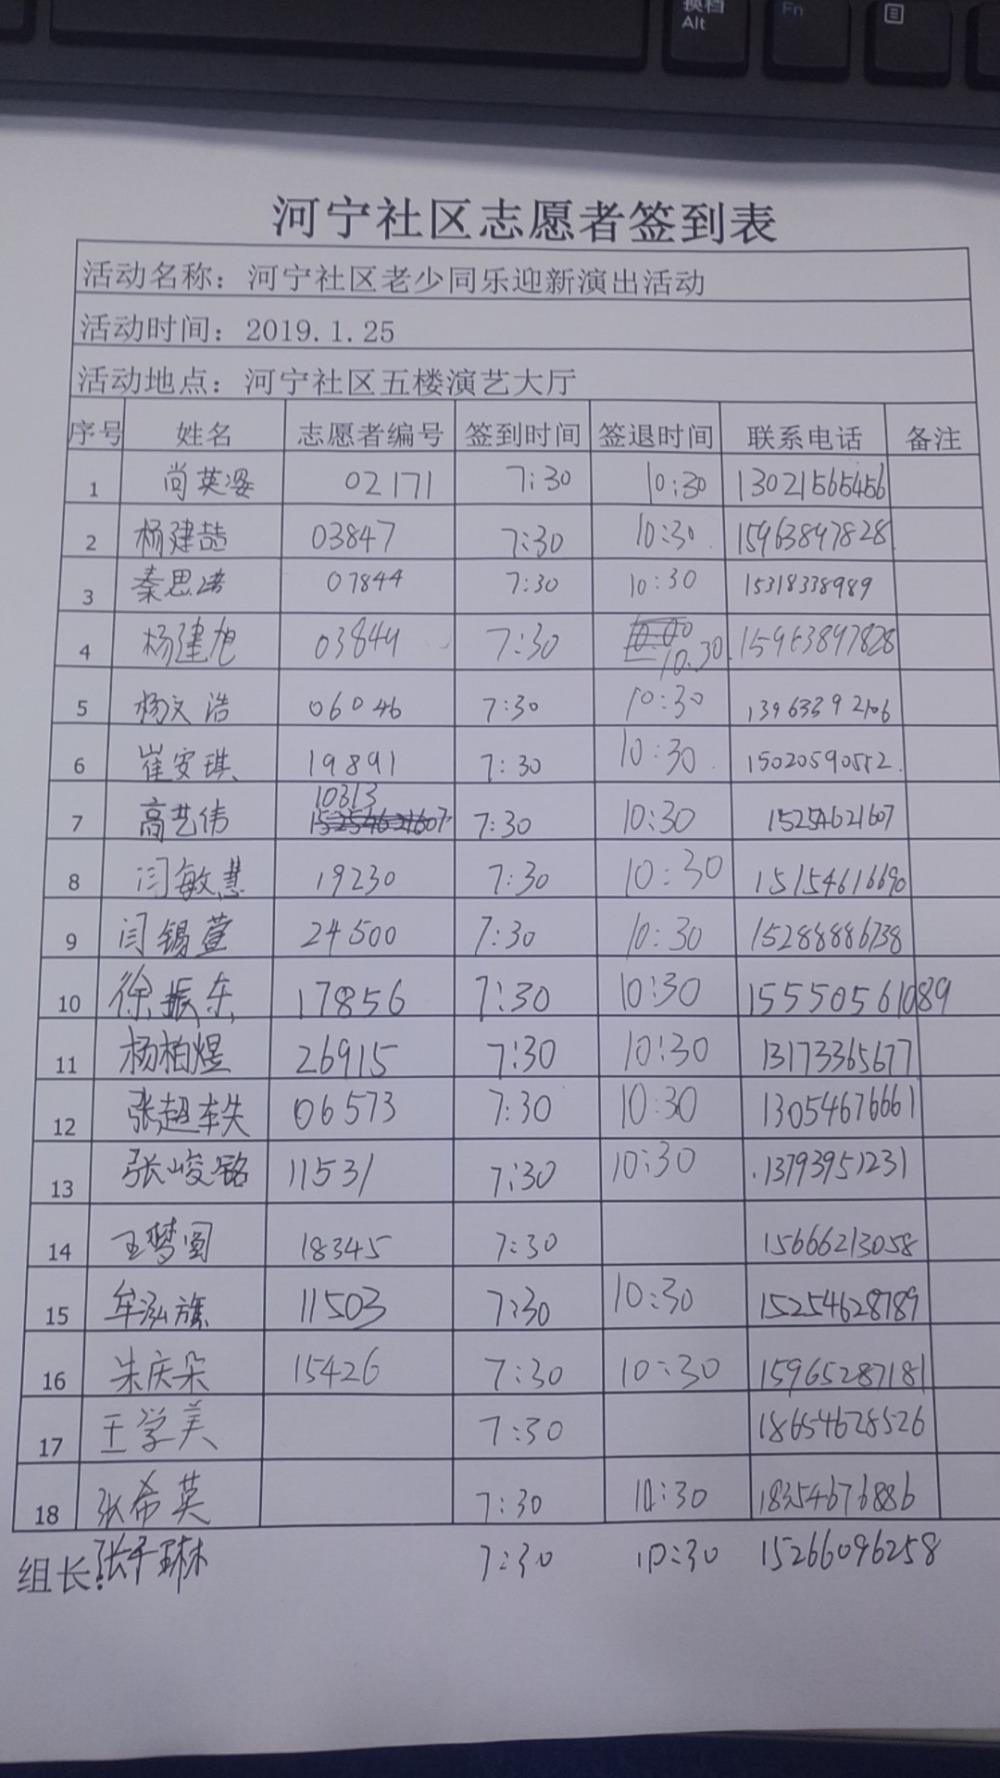 换档
Alt
Fn
河宁社区志愿者签到表
活动名称：河宁社区老少同乐迎新演出活动
活动时间：2019.1.25
活动地点：河宁社区五楼演艺大厅
序号 姓名 志愿者编号 签到时间 签退时间 联系电话 备注
1 尚英姿 02171 7:30 10:30 13021565456
2 杨建喆 03847 7:30 10:30 15963897828
3 秦思 07844 7:30 10:30 15318338989
4 杨建旭 03844 7:30 10:30 15963897828
5 杨文浩 06046 7:30 10:30 13963392106
6 崔安琪 19891 7:30 10:30 15020590552
7 高艺伟 10313 7:30 10:30 15254621607
8 闫敏慧 19230 7:30 10:30 15154616690
9 闫锡萱 24500 7:30 10:30 15288886738
10 徐振东 17856 7:30 10:30 15550561089
11 杨柏煜 26915 7:30 10:30 13173365677
12 张超轶 06573 7:30 10:30 13054676661
13 张峻铭 11531 7:30 10:30 13793951231
14 王梦圆 18345 7:30 15666213058
15 牟泓旗 11503 7:30 10:30 15254628789
16 朱庆朵 15426 7:30 10:30 15965287181
17 王学美 7:30 18654628526
18 张希英 7:30 10:30 18354676886
组长:张千琳 7:30 10:30 15266096258